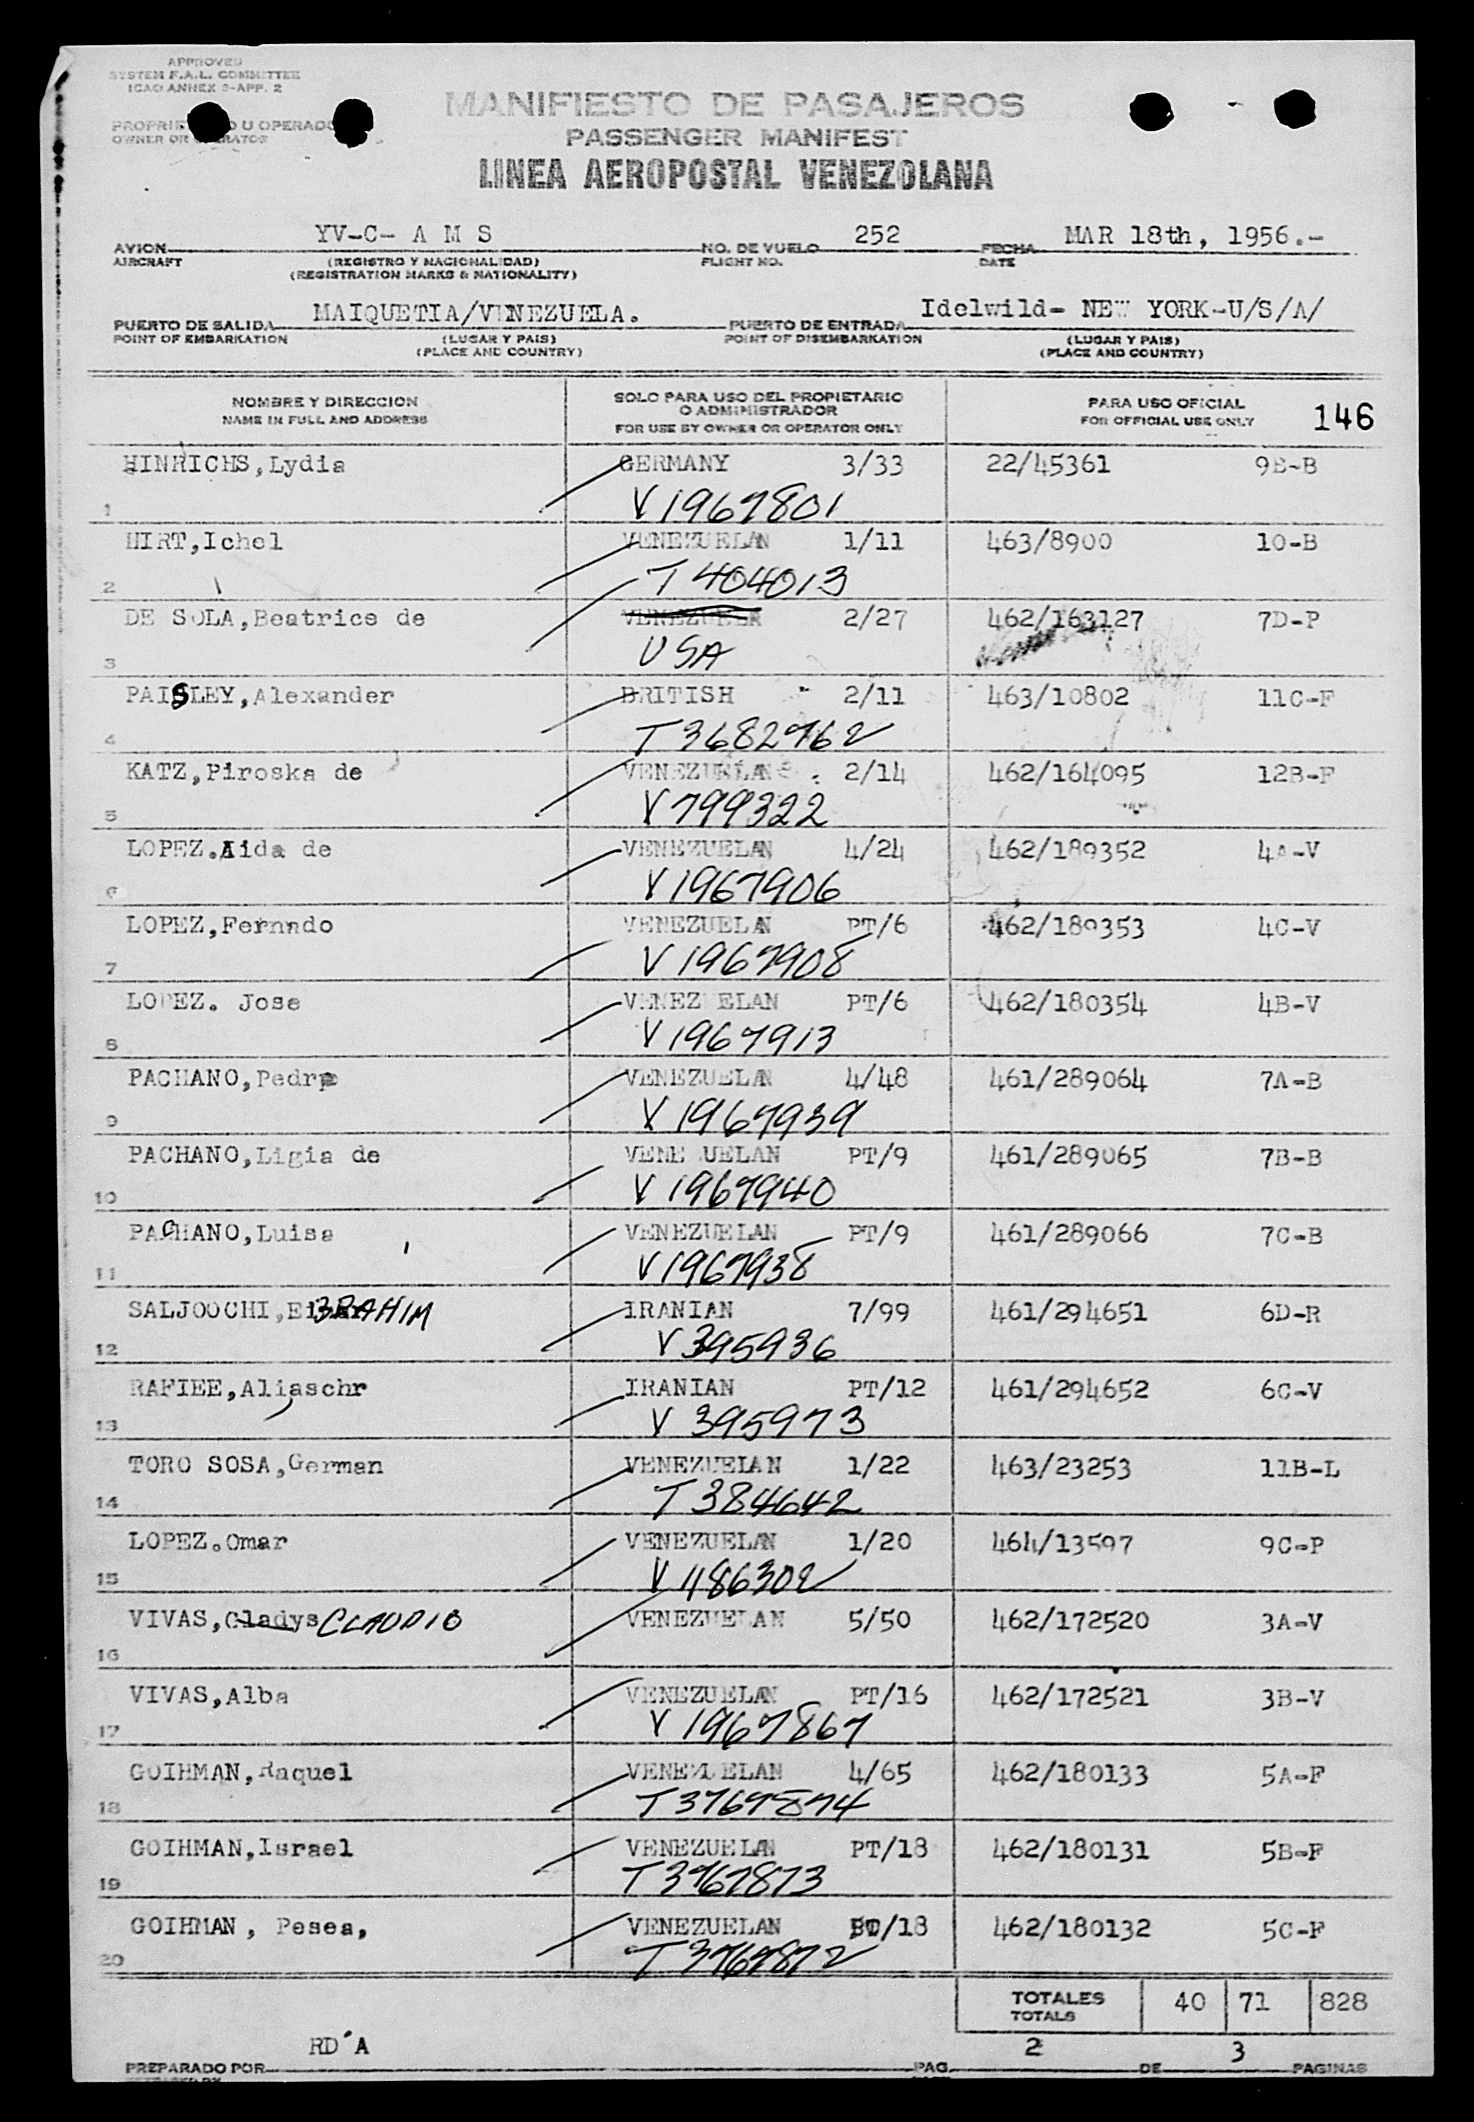 APPROVED
SYSTEM F.A.L. COMMITTEE
ICAO ANNEX 9-APP. 2
MANIFIESTO DE PASAJEROS
PASSENGER MANIFEST
LINEA AEROPOSTAL VENEZOLANA
U OPERADO
OWNER OR
YV-C- A M S 252 MAR 18th, 1956.-
AVION NO. DE VUELO FECHA
AIRCRAFT (REGISTRO Y NACIONALIDAD) FLIGHT NO. DATE
(REGISTRATION MARKS & NATIONALITY)
MAIQUETIA/VENEZUELA. Idelwild- NEW YORK-U/S/A/
PUERTO DE SALIDA PUERTO DE ENTRADA
POINT OF EMBARKATION (LUGAR Y PAIS) POINT OF DISEMBARKATION (LUGAR Y PAIS)
(PLACE AND COUNTRY) (PLACE AND COUNTRY)
NOMBRE Y DIRECCION SOLO PARA USO DEL PROPIETARIO PARA USO OFICIAL 146
NAME IN FULL AND ADDRESS O ADMINISTRADOR FOR OFFICIAL USE ONLY
FOR USE BY OWNER OR OPERATOR ONLY
HINRICHS,Lydia GERMANY 3/33 22/45361 9E-B
1 V 1967801
HIRT,Ichel VENEZUELAN 1/11 463/8900 10-B
2 T 404013
DE SOLA,Beatrice de 2/27 462/163127 7D-P
3 USA
PAISLEY,Alexander BRITISH 2/11 463/10802 11C-F
4 T 3682762
KATZ,Piroska de VENEZUELAN 2/14 462/164095 12B-F
5 V 799322
LOPEZ.Aida de VENEZUELAN 4/24 462/189352 4A-V
6 V 1967906
LOPEZ,Fernndo VENEZUELAN PT/6 462/189353 4C-V
7 V 1967908
LOPEZ. Jose VENEZUELAN PT/6 462/180354 4B-V
8 V 1967913
PACHANO,Pedro VENEZUELAN 4/48 461/289064 7A-B
9 V 1967939
PACHANO,Ligia de VENEZUELAN PT/9 461/289065 7B-B
10 V 1967940
PACHANO,Luisa VENEZUELAN PT/9 461/289066 7C-B
11 V 1967938
SALJOOCHI,EBRAHIM IRANIAN 7/99 461/294651 6D-R
12 V 395936
RAFIEE,Aliaschr IRANIAN PT/12 461/294652 6C-V
13 V 395973
TORO SOSA,German VENEZUELAN 1/22 463/23253 11B-L
14 T 384642
LOPEZ.Omar VENEZUELAN 1/20 464/13597 9C-P
15 V 1186302
VIVAS,Gladys CLAUDIO VENEZUELAN 5/50 462/172520 3A-V
16
VIVAS,Alba VENEZUELAN PT/16 462/172521 3B-V
17 V 1967867
GOIHMAN,Raquel VENEZUELAN 4/65 462/180133 5A-F
18 T 3767874
GOIHMAN,Israel VENEZUELAN PT/18 462/180131 5B-F
19 T 3767873
GOIHMAN, Pesea, VENEZUELAN /18 462/180132 5C-F
20 T 3767872
TOTALES 40 71 828
TOTALS
RD´A 2 3
PREPARADO POR PAG. DE PAGINAS